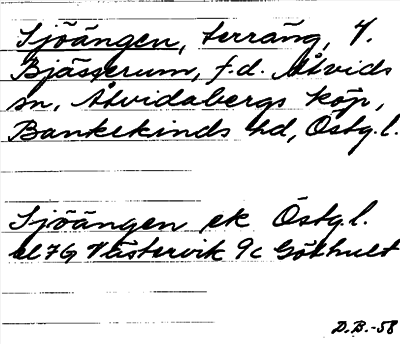 Sjöängen, terräng, Y.
Bjässerum, f.d. Åtvids
sn, Åtvidabergs köp,
Bankekinds hd, Östg. l.
Sjöängen ek Östg. l.
bl 76 Västervik 9c Göthult
D.B.-58